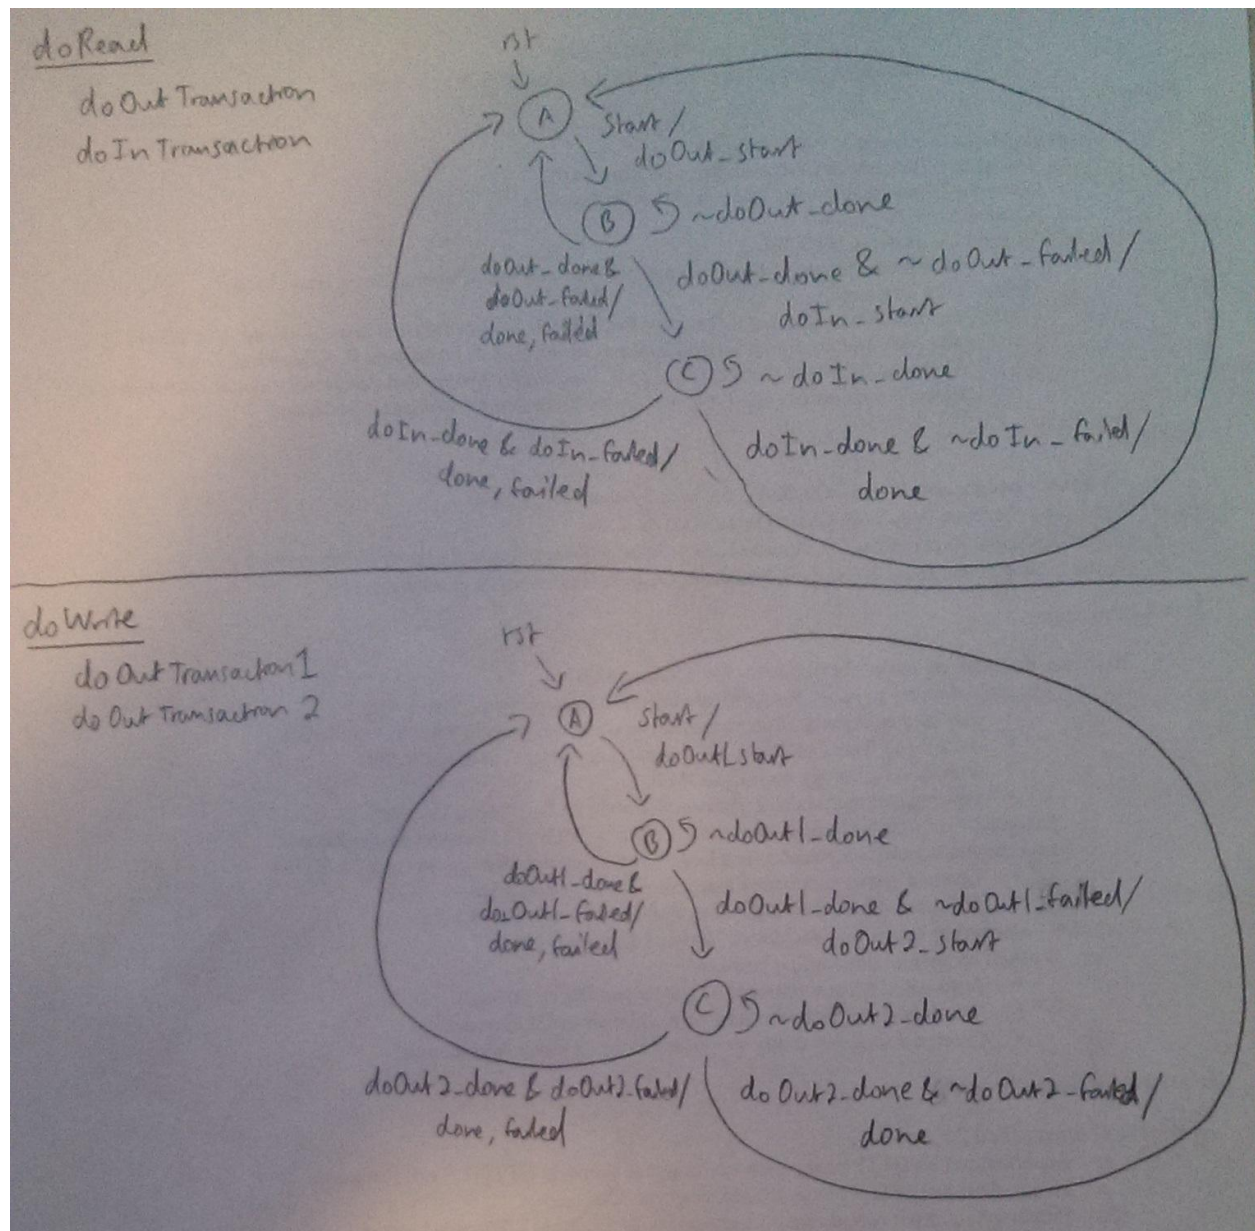 doRead
doOutTransaction
doInTransaction
rst
A
start/
doOut_start
B
~doOut_done
doOut_done &
doOut_failed/
done, failed
doOut_done & ~doOut_failed/
doIn_start
C
~doIn_done
doIn_done & doIn_failed/
done, failed
doIn_done & ~doIn_failed/
done
doWrite
doOutTransaction1
doOutTransaction2
rst
A
start/
doOut1_start
B
~doOut1_done
doOut1_done &
doOut1_failed/
done, failed
doOut1_done & ~doOut1_failed/
doOut2_start
C
~doOut2_done
doOut2_done & doOut2_failed/
done, failed
doOut2_done & ~doOut2_failed/
done